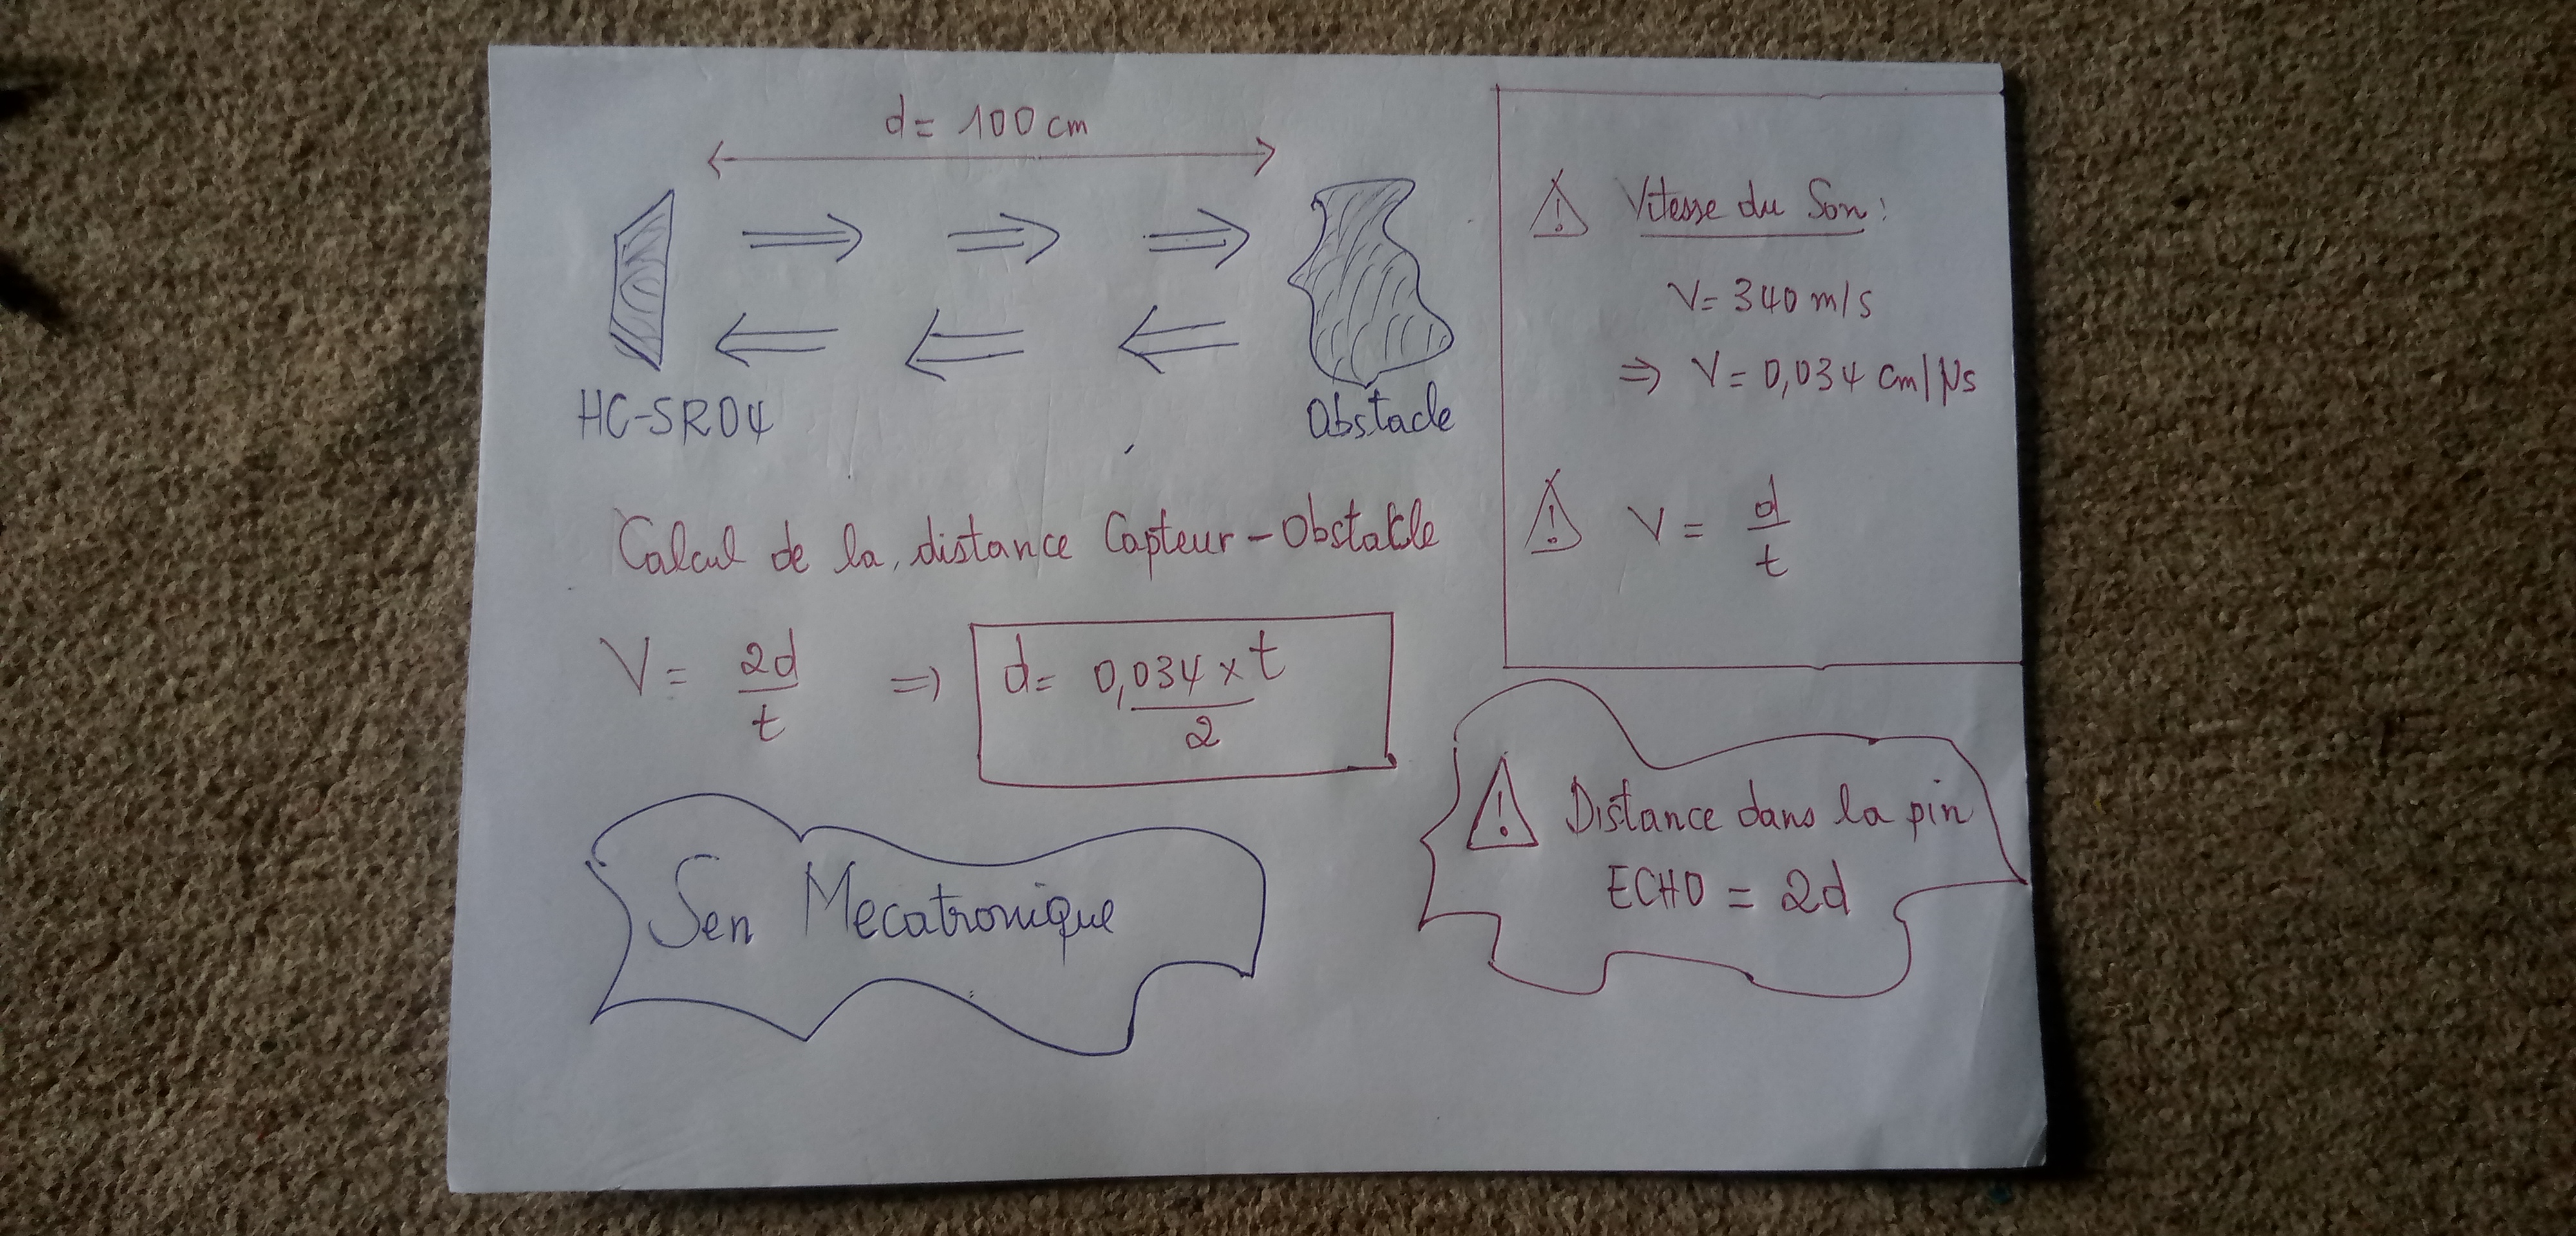 d = 100 cm
HC-SR04
Obstacle
Calcul de la distance Capteur - Obstacle
V = 2d / t ⇒ d = 0,034 x t / 2
Sen Mecatronique
⚠ Vitesse du Son :
V = 340 m/s
⇒ V = 0,034 cm/µs
⚠ V = d / t
⚠ Distance dans la pin
ECHO = 2d